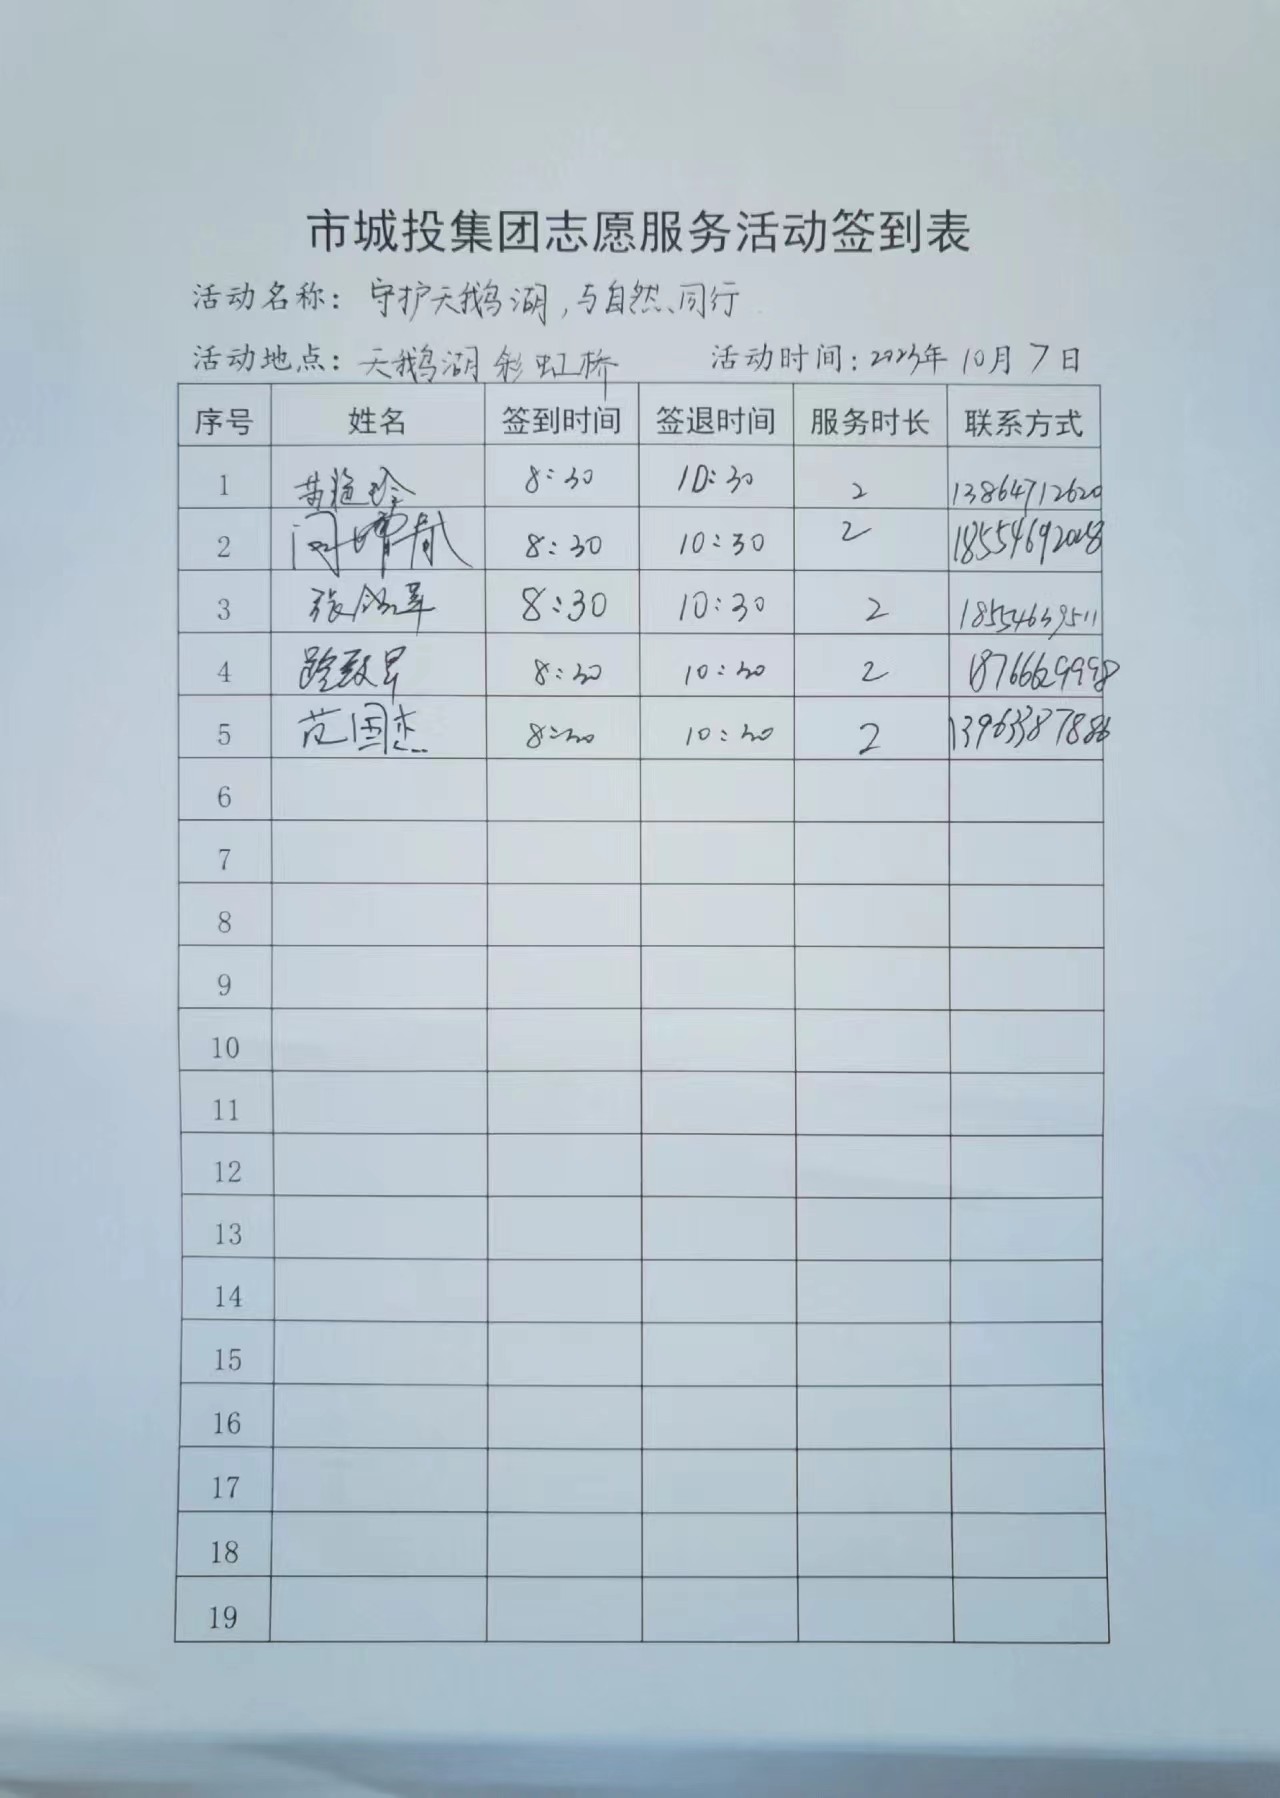 市城投集团志愿服务活动签到表
活动名称：守护天鹅湖，与自然同行
活动地点：天鹅湖彩虹桥 活动时间：2023年10月7日
序号 姓名 签到时间 签退时间 服务时长 联系方式
1 黄 玲 8:30 10:30 2 13864712620
2 8:30 10:30 2
3 张 军 8:30 10:30 2 18554639511
4 路致早 8:30 10:30 2 18766629998
5 范国杰 8:30 10:30 2 13963387886
6
7
8
9
10
11
12
13
14
15
16
17
18
19